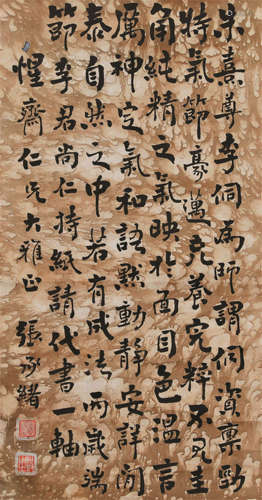 朱熹尊李侗為師謂侗資禀勁
特氣節豪邁充養完粹不見圭
角純精之氣映於面目色溫言
厲神定氣和語默動靜安詳閒
泰自然之中若有成法而歲端
節李君尚仁持紙請代書一軸
惺齋仁兄大雅正
張承緒